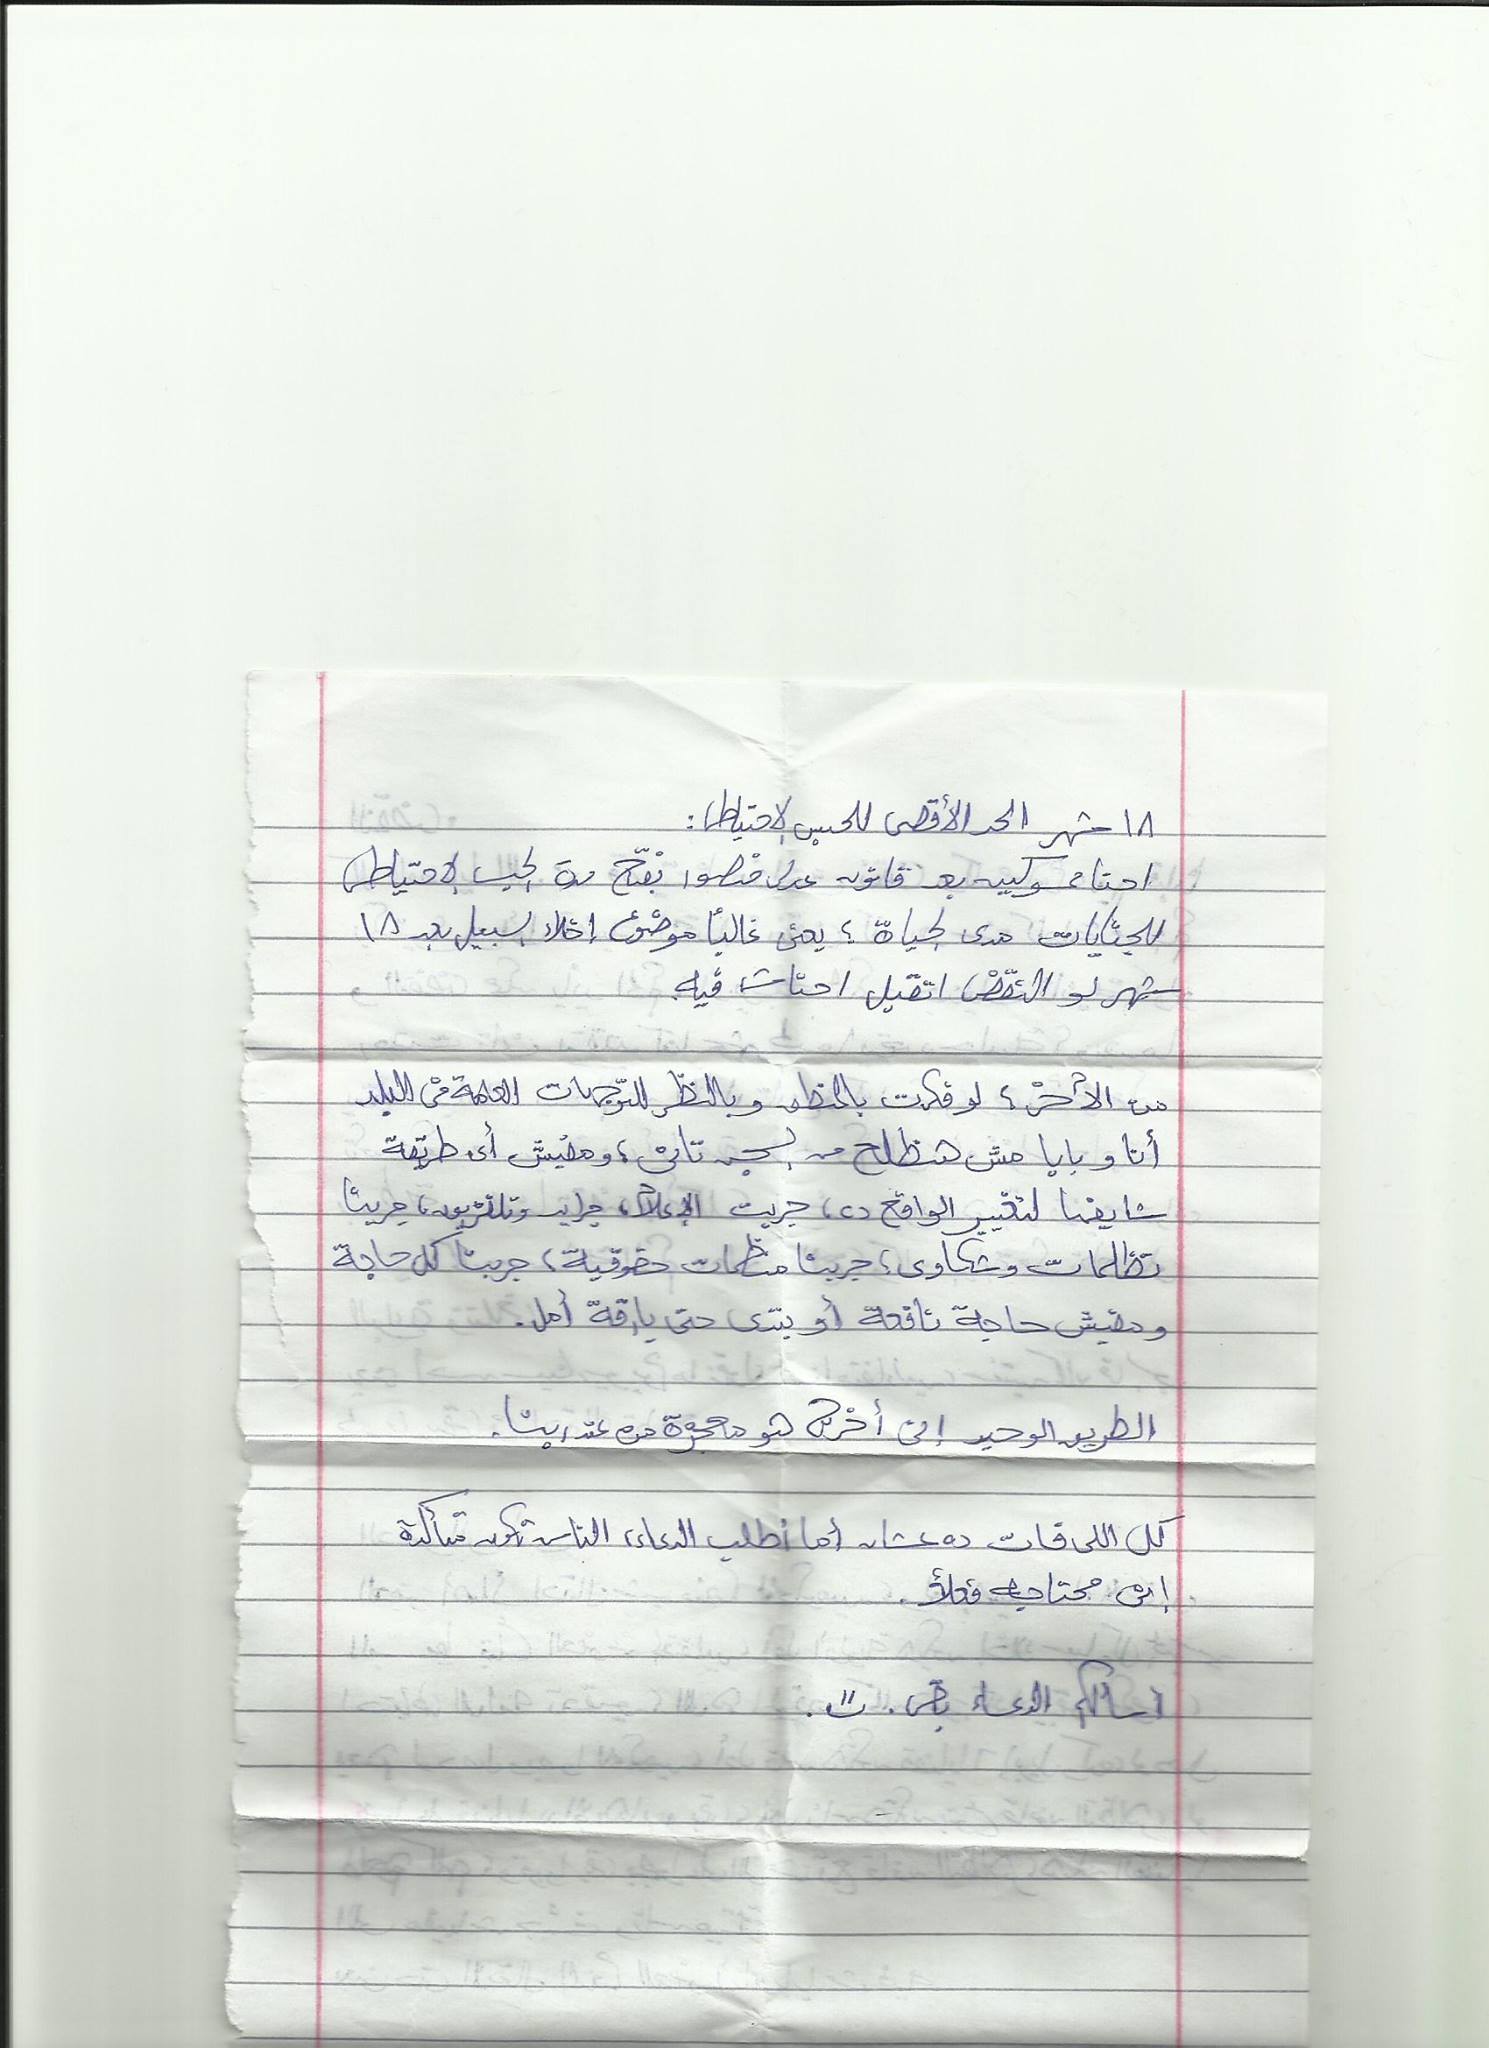 ١٨ شهر الحد الأقصى للحبس الاحتياطى:
احنا محبوسين بعد قانون عدلى منصور بفتح مدة الحبس الاحتياطى
للجنايات مدى الحياة ؛ يعنى غالباً موضوع إخلاء السبيل بعد ١٨
شهر لو النقض اتقبل احنا فيه.
من الآخر ؛ لو فكرت بالمنطق وبالنظر للتوجهات العامة فى البلد
أنا وبابا مش هنطلع من السجن تانى ، ومفيش أى طريقة
شايفها لتغيير الواقع ده، جربت الإعلام، جرايد وتلفزيون، جربنا
تظلمات وشكاوى، جربنا منظمات حقوقية، جربنا كل حاجة
ومفيش حاجة نافعة أو بتدى حتى بارقة أمل.
الطريق الوحيد إنى أخرج هو معجزة من عند ربنا.
كل اللى فات ده عشان أما أطلب الدعاء، الناس تكون متأكدة
إنى محتاجه فعلاً.
أسألكم الدعاء بقى.